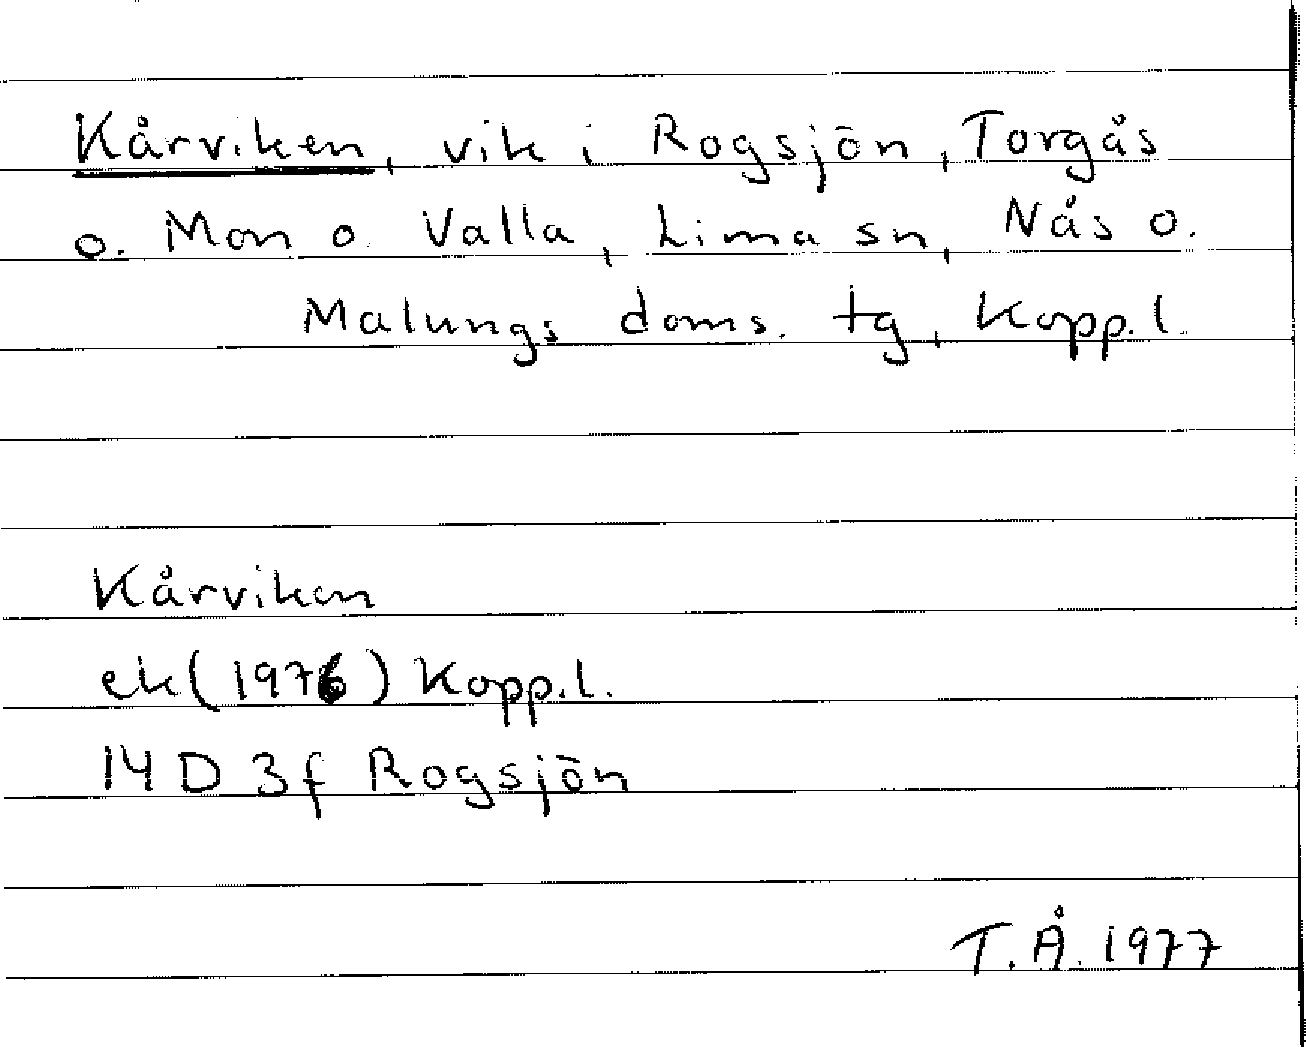 Kårviken, vik i Rogsjön, Torgås
o. Mon o. Valla, Lima sn, Nås o.
Malungs doms. tg, Kopp.l.
Kårviken
ek (1976) Kopp.l.
14 D 3f Rogsjön
T.Å. 1977